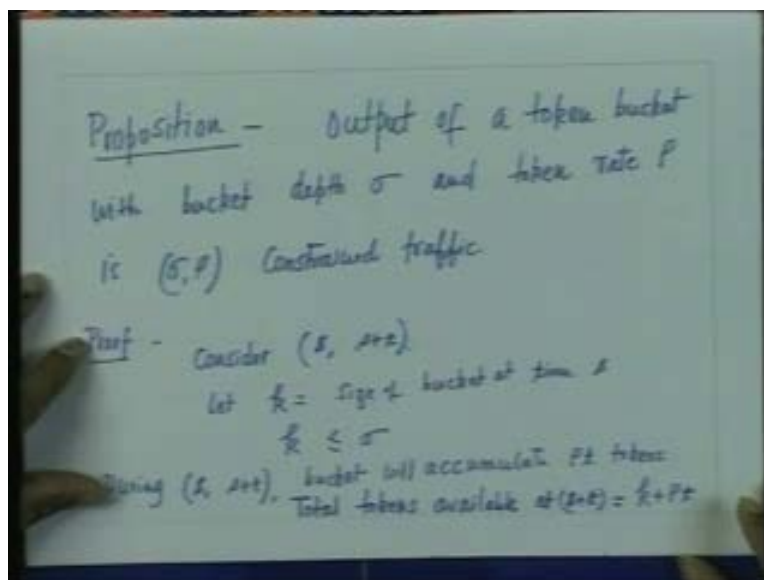 Proposition - Output of a token bucket
with bucket depth σ and token rate ρ
is (σ, ρ) Constrained traffic
Proof - Consider (s, s+t)
Let k = size of bucket at time s
k ≤ σ
During (s, s+t), bucket will accumulate ρt tokens
Total tokens available at (s+t) = k+ρt